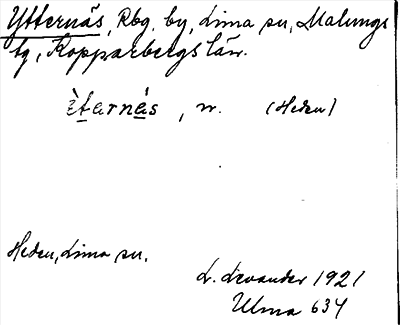 Ytternäs, Rbg. by, Lima sn, Malungs
tg, Kopparbergs län.
ètarnás, n. (Heden)
Heden, Lima sn.
L. Levander 1921
Ulma 634